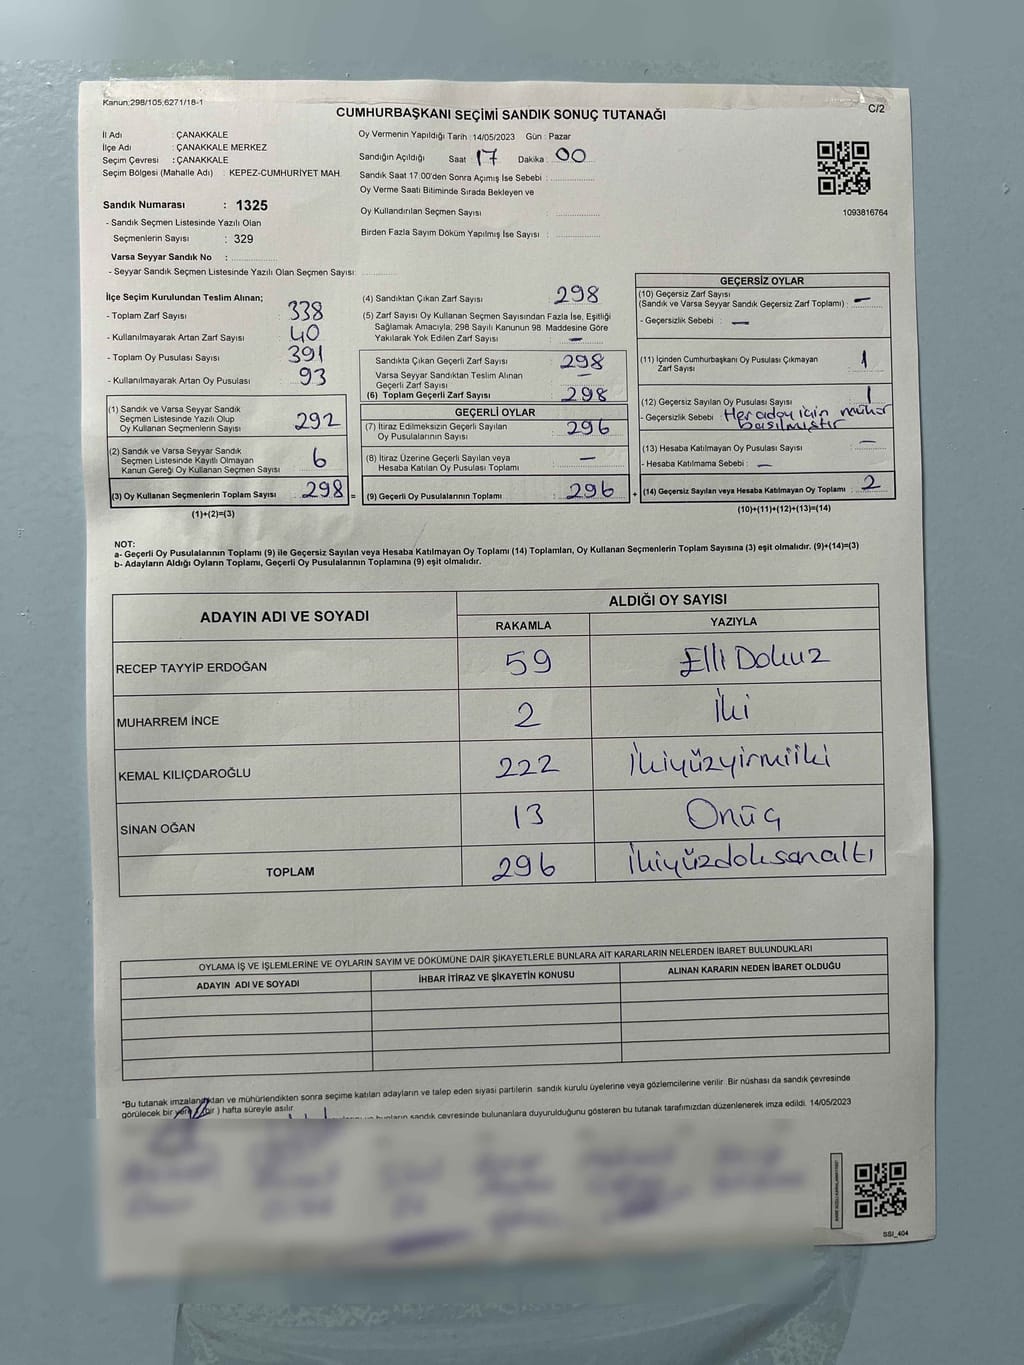 Kanun:298/105;6271/18-1
C/2
CUMHURBAŞKANI SEÇİMİ SANDIK SONUÇ TUTANAĞI
İl Adı : ÇANAKKALE
İlçe Adı : ÇANAKKALE MERKEZ
Seçim Çevresi : ÇANAKKALE
Seçim Bölgesi (Mahalle Adı) : KEPEZ-CUMHURİYET MAH.
Sandık Numarası : 1325
- Sandık Seçmen Listesinde Yazılı Olan
Seçmenlerin Sayısı : 329
Varsa Seyyar Sandık No :
- Seyyar Sandık Seçmen Listesinde Yazılı Olan Seçmen Sayısı:
Oy Vermenin Yapıldığı Tarih : 14/05/2023 Gün : Pazar
Sandığın Açıldığı Saat : 17 Dakika : 00
Sandık Saat 17:00'den Sonra Açımış İse Sebebi :
Oy Verme Saati Bitiminde Sırada Bekleyen ve
Oy Kullandırılan Seçmen Sayısı :
Birden Fazla Sayım Döküm Yapılmış İse Sayısı :
1093816764
İlçe Seçim Kurulundan Teslim Alınan;
- Toplam Zarf Sayısı : 338
- Kullanılmayarak Artan Zarf Sayısı : 40
- Toplam Oy Pusulası Sayısı : 391
- Kullanılmayarak Artan Oy Pusulası : 93
(1) Sandık ve Varsa Seyyar Sandık
Seçmen Listesinde Yazılı Olup
Oy Kullanan Seçmenlerin Sayısı : 292
(2) Sandık ve Varsa Seyyar Sandık
Seçmen Listesinde Kayıtlı Olmayan
Kanun Gereği Oy Kullanan Seçmen Sayısı : 6
(3) Oy Kullanan Seçmenlerin Toplam Sayısı : 298 =
(1)+(2)=(3)
(4) Sandıktan Çıkan Zarf Sayısı : 298
(5) Zarf Sayısı Oy Kullanan Seçmen Sayısından Fazla İse, Eşitliği
Sağlamak Amacıyla, 298 Sayılı Kanunun 98. Maddesine Göre
Yakılarak Yok Edilen Zarf Sayısı : -
Sandıkta Çıkan Geçerli Zarf Sayısı : 298
Varsa Seyyar Sandıktan Teslim Alınan
Geçerli Zarf Sayısı : -
(6) Toplam Geçerli Zarf Sayısı : 298
GEÇERLİ OYLAR
(7) İtiraz Edilmeksizin Geçerli Sayılan
Oy Pusulalarının Sayısı : 296
(8) İtiraz Üzerine Geçerli Sayılan veya
Hesaba Katılan Oy Pusulası Toplamı : -
(9) Geçerli Oy Pusulalarının Toplamı : 296 +
GEÇERSİZ OYLAR
(10) Geçersiz Zarf Sayısı
(Sandık ve Varsa Seyyar Sandık Geçersiz Zarf Toplamı) : -
- Geçersizlik Sebebi : -
(11) İçinden Cumhurbaşkanı Oy Pusulası Çıkmayan
Zarf Sayısı : 1
(12) Geçersiz Sayılan Oy Pusulası Sayısı : 1
- Geçersizlik Sebebi : Her aday için mühür
basılmıştır
(13) Hesaba Katılmayan Oy Pusulası Sayısı : -
- Hesaba Katılmama Sebebi : -
(14) Geçersiz Sayılan veya Hesaba Katılmayan Oy Toplamı : 2
(10)+(11)+(12)+(13)=(14)
NOT:
a- Geçerli Oy Pusulalarının Toplamı (9) ile Geçersiz Sayılan veya Hesaba Katılmayan Oy Toplamı (14) Toplamları, Oy Kullanan Seçmenlerin Toplam Sayısına (3) eşit olmalıdır. (9)+(14)=(3)
b- Adayların Aldığı Oyların Toplamı, Geçerli Oy Pusulalarının Toplamına (9) eşit olmalıdır.
ADAYIN ADI VE SOYADI
ALDIĞI OY SAYISI
RAKAMLA YAZIYLA
RECEP TAYYİP ERDOĞAN 59 Elli Dokuz
MUHARREM İNCE 2 İki
KEMAL KILIÇDAROĞLU 222 İkiyüzyirmiiki
SİNAN OĞAN 13 Onüç
TOPLAM 296 İkiyüzdoksanaltı
OYLAMA İŞ VE İŞLEMLERİNE VE OYLARIN SAYIM VE DÖKÜMÜNE DAİR ŞİKAYETLERLE BUNLARA AİT KARARLARIN NELERDEN İBARET BULUNDUKLARI
ADAYIN ADI VE SOYADI İHBAR İTİRAZ VE ŞİKAYETİN KONUSU ALINAN KARARIN NEDEN İBARET OLDUĞU
*Bu tutanak imzalandıktan ve mühürlendikten sonra seçime katılan adayların ve talep eden siyasi partilerin sandık kurulu üyelerine veya gözlemcilerine verilir. Bir nüshası da sandık çevresinde
görülecek bir yere (bir) hafta süreyle asılır.
bunların sandık çevresinde bulunanlara duyurulduğunu gösteren bu tutanak tarafımızdan düzenlenerek imza edildi. 14/05/2023
SSI_404